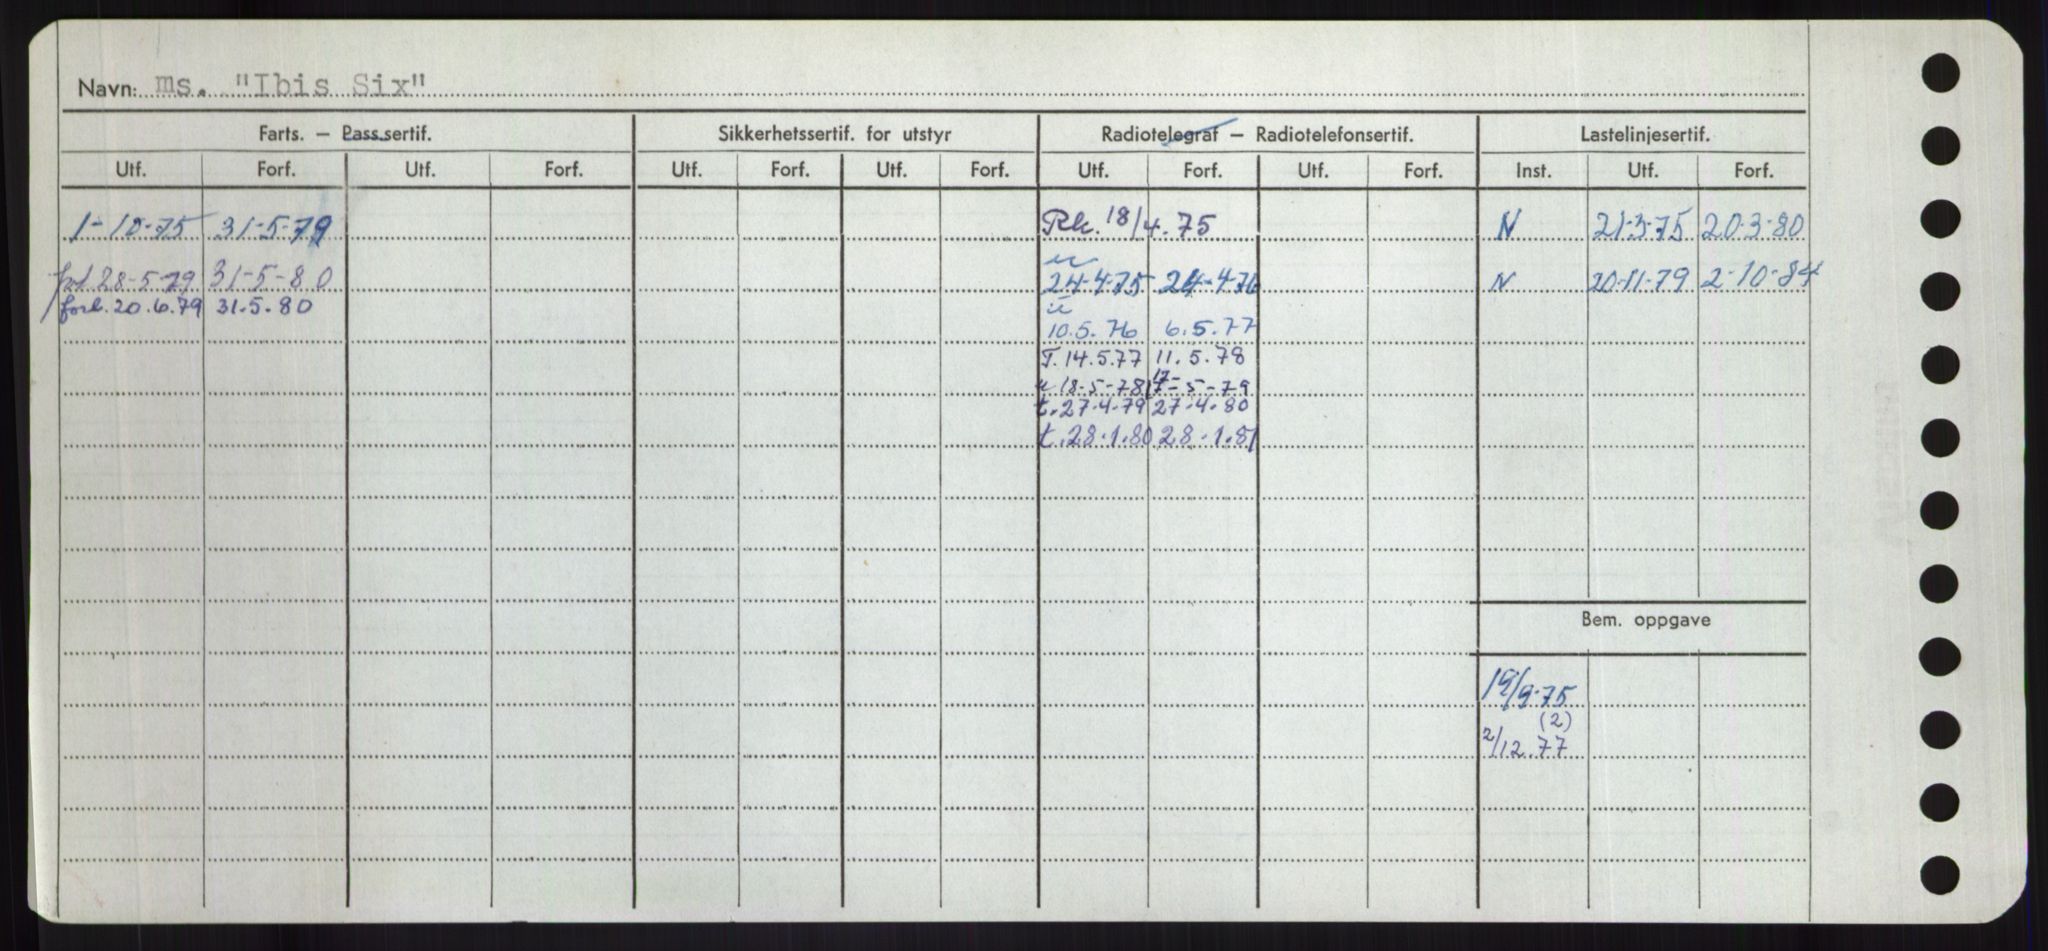 Navn: ms. "Ibis Six"
Farts. – Pass.sertif. Sikkerhetssertif. for utstyr Radiotelegraf – Radiotelefonsertif. Lastelinjesertif.
Utf. Forf. Utf. Forf. Utf. Forf. Utf. Forf. Utf. Forf. Utf. Forf. Inst. Utf. Forf.
1-10-75 31-5-79 Rk. 18/4.75 N 21-3-75 20-3-80
u
28-5-79 31-5-80 24-4-75 24-4-76 N 20-11-79 2-10-84
forb. 20.6.79 31.5.80 u
10.5.76 6.5.77
T. 14.5.77 11.5.78
17-
u 18-5-78 17-5-79
t. 27.4.79 27.4.80
t. 28.1.80 28.1.81
Bem. oppgave
19/9-75
(2)
2/12.77